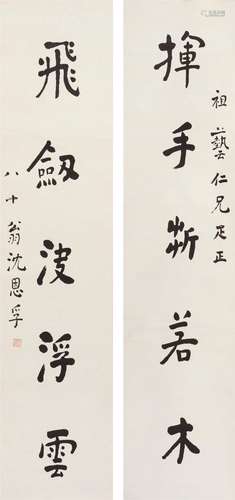 祖藝仁兄疋正
揮手折若木
飛劔決浮雲
八十翁沈恩孚